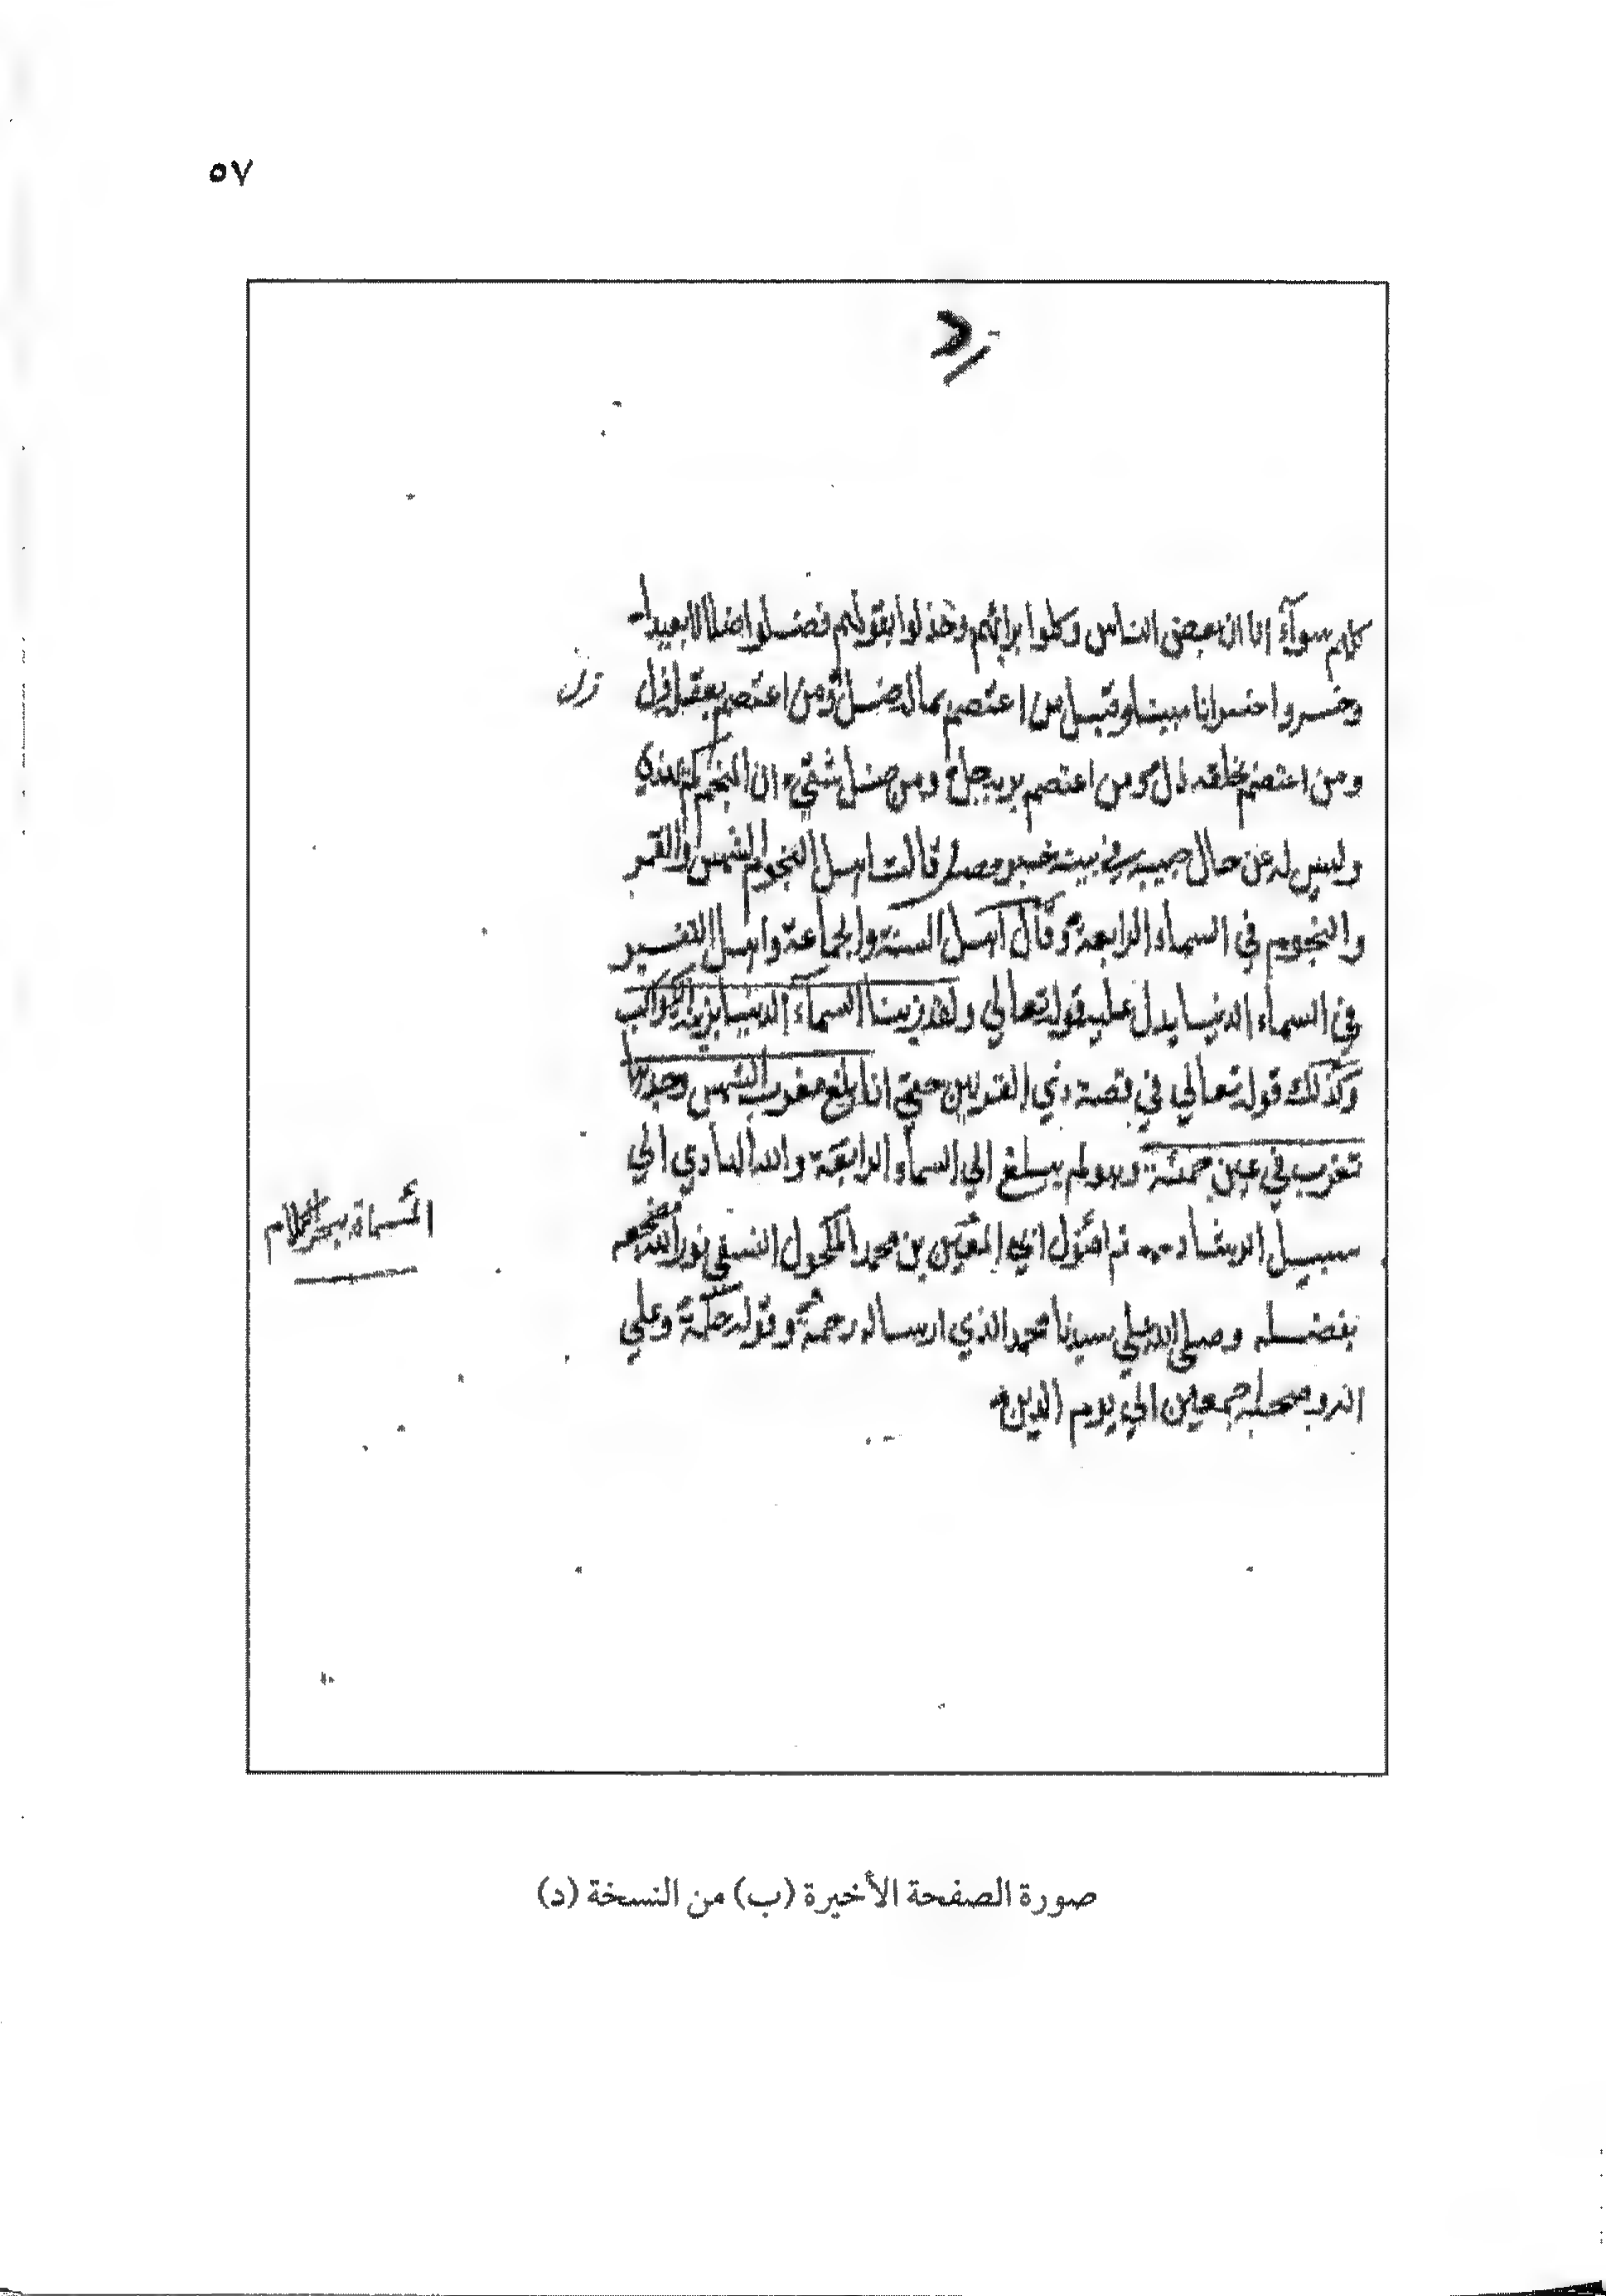 ٥٧
كلهم سوآء الا ان بعض الناس وكلوا برائهم وخذلوا بقولهم فضلوا ضلالا بعيدا
وخسروا خسرانا مبينا وقيل من اعتصم بماله ضل ومن اعتصم بعقله زل
زل
ومن اعتصم بخلقه ذل ومن اعتصم بربه جل ومن ضل شقي ان المنجم
وليس له عن حال حبيبه في بيته خبر فصل قالت اهل النجوم الشمس والقمر
والنجوم في السماء الرابعة وقال اهل السنة والجماعة واهل التفسير
في السماء الدنيا يدل عليه قوله تعالي ولقد زينا السمآء الدنيا بزينة الكواكب
وكذلك قوله تعالي في قصة ذي القرنين حتي اذا بلغ مغرب الشمس وجدها
تغرب في عين حمئة وهو لم يبلغ الي السماء الرابعة والله الهادي الي
سبيل الرشاد تم ابي المعين بن محمد المكحول النسفي نور الله مضجعه
المسماة ببحر الكلام
بفضله وصلي الله علي سيدنا محمد الذي ارساله رحمة وقوله حكمة وعلي
اله وصحبه اجمعين الي يوم الدين
صورة الصفحة الأخيرة (ب) من النسخة (د)